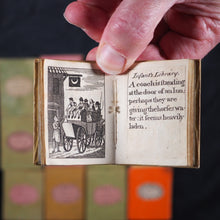 Infant's Library.
A coach is standing
at the door of an Inn:
perhaps they are
giving the horses wa-
ter: it seems heavily
laden.